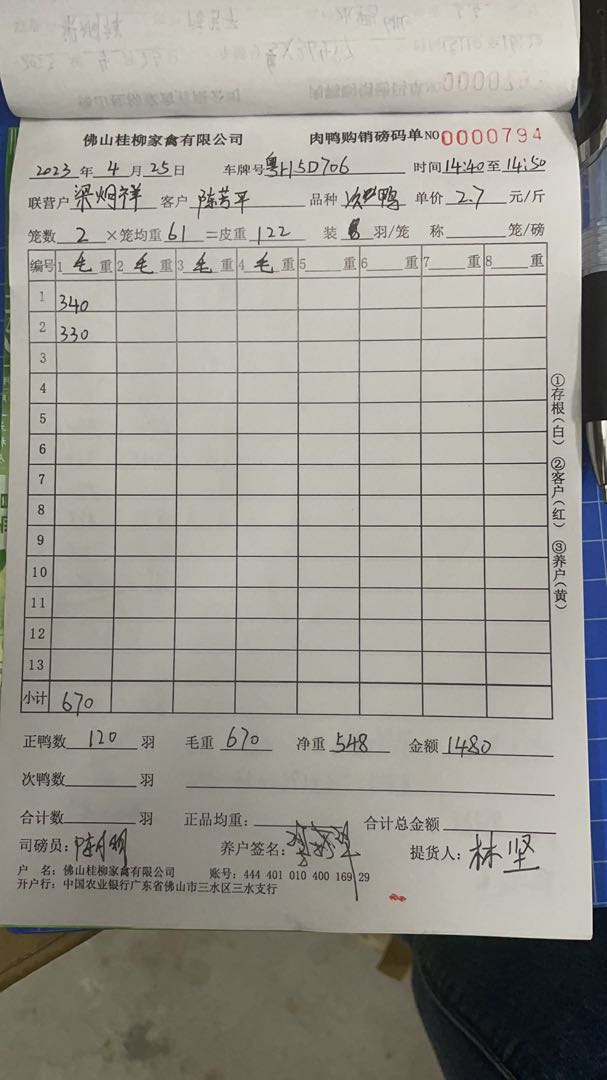 佛山桂柳家禽有限公司 肉鸭购销磅码单 NO 0000794
2023 年 4 月 25 日 车牌号 粤H5D706 时间 14:40 至 14:50
联营户 梁炯祥 客户 陈芳平 品种 鸭 单价 2.7 元/斤
笼数 2 ×笼均重 61 =皮重 122 装 羽/笼 称 笼/磅
编号 1 毛 重 2 毛 重 3 毛 重 4 毛 重 5 重 6 重 7 重 8 重
1 340
2 330
3
4
5
6
7
8
9
10
11
12
13
小计 670
正鸭数 120 羽 毛重 670 净重 548 金额 1480
次鸭数 羽
合计数 羽 正品均重: 合计总金额
司磅员: 养户签名: 提货人: 林坚
户 名: 佛山桂柳家禽有限公司 账号: 444 401 010 400 169 29
开户行: 中国农业银行广东省佛山市三水区三水支行
①存根(白) ②客户(红) ③养户(黄)